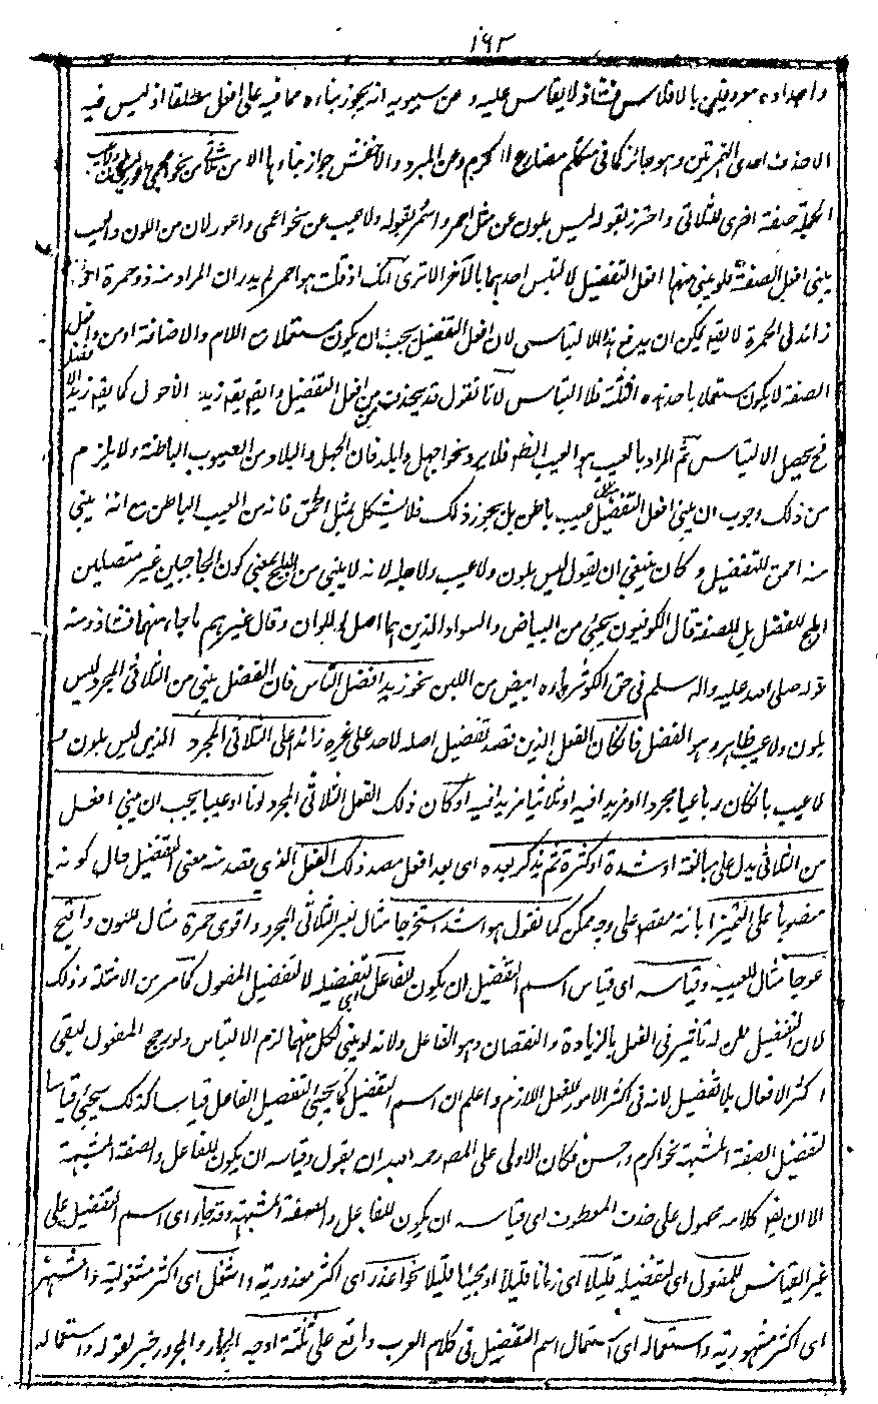 ۱۹۲
واجداده موديقن بالافلاس فشاذ لا يقاس عليه وعن سيبويه انه يجوز بناءه مما فيه على افعل مطلقا اذ ليس فيه
الا حذف احدى الهمزتين وهو جائز كما فى متكلم مضارع اكرم وعن المبرد والاخفش جواز بناءها الا من ثلاثى
الجملة صفة اخرى لثلاثى واحترز بقوله ليس بلون عن مثل احمر واسمر وبقوله ولا عيب عن نحو اعمى واعور لان من اللون والعيب
يبنى افعل الصفة فلو بنى منها افعل التفضيل لالتبس احدهما بالآخر الا ترى انك اذ قلت هو احمر لم يدر ان المراد منه ذو حمرة او
زائد فى الحمرة لا يقه يمكن ان يدفع هذا الالتباس لان افعل التفضيل يجب ان يكون مستعملا ب اللام والاضافة او من وافعل
الصفة لا يكون مستعملا باحد هذه الثلثة فلا التباس لانا نقول قد يحذف من من افعل التفضيل والقه يقه زيد الاحول كما يقه زيد الا
فح يحصل الالتباس ثم المراد بالعيب هو العيب الظ فلا يرد نحو اجهل وابلد فان الجهل والبلادة من العيوب الباطنة ولا يلزم
من ذلك وجوب ان يبنى افعل التفضيل من كل عيب باطن بل يجوز ذلك فلا يشكل بمثل الحمق فانه من العيب الباطن مع انه يبنى
منه احمق للتفضيل وكان ينبغى ان يقول ليس بلون ولا عيب ولا حلية لانه لا يبنى من البلج بمعنى كون الحاجبين غير متصلين
ابلج للتفضيل بل للصفة قال الكوفيون يجئ من البياض والسواد الذين هما اصل الالوان وقال غيرهم ما جاء منهما فشاذ ومنه
قوله صلى الله عليه وآله وسلم فى حق الكوثر ماءه ابيض من اللبن نحو زيد افضل الناس فان افضل يبنى من الثلاثى المجرد ليس
بلون ولا عيب ظاهر وهو الفضل فان كان الفعل الذى قصد تفضيل اصله لاحد على غيره زائدا على الثلاثى المجرد الذى ليس بلون
لا عيب بان كان رباعيا مجردا او مزيدا فيه او ثلاثيا مزيدا فيه او كان ذلك الفعل الثلاثى المجرد لونا او عيبا يجب ان يبنى افعل
من الثلاثى يدل على مبالغة او شدة او كثرة ثم يذكر بعده اى بعد افعل مصدر ذلك الفعل الذى يقصد منه معنى التفضيل حال كونه
منصوبا على التميز ابانة مقصده على وجه ممكن كما نقول هو اشد استخرجا مثال لغير الثلاثى المجرد واقوى حمرة مثال للون واقبح
عوجا مثال للعيب وقياسه اى قياس اسم التفضيل ان يكون للفاعل اى لتفضيله لا لتفضيل المفعول كما مر من الامثلة وذلك
لان التفضيل لمن له تاثير فى الفعل بالزيادة والنقصان وهو الفاعل ولانه لو بنى لكل منهما لزم الالتباس ولو رجح المفعول لبقى
اكثر الافعال بلا تفضيل لانه فى اكثر الامور للفعل اللازم واعلم ان اسم التفضيل كما يجئ لتفضيل الفاعل قياسا كذلك يجئ قياسا
لتفضيل الصفة المشبهة نحو اكرم وحسن فكان الاولى على المص رحمه الله ان يقول وقياسه ان يكون للفاعل والصفة المشبهة
الا ان يقه كلامه محمول على حذف المعطوف اى قياسه ان يكون للفاعل والصفة المشبهة وقد جاء اى اسم التفضيل على
غير القياس للمفعول اى لتفضيله قليلا اى زمانا قليلا او مجيئا قليلا نحو اعذر اى اكثر معذورية واشغل اى اكثر مشغولية واشهر
اى اكثر مشهورية واستعماله اى استعمال اسم التفضيل فى كلام العرب واقع على ثلثة اوجه الجار والمجرور خبر لقوله واستعماله